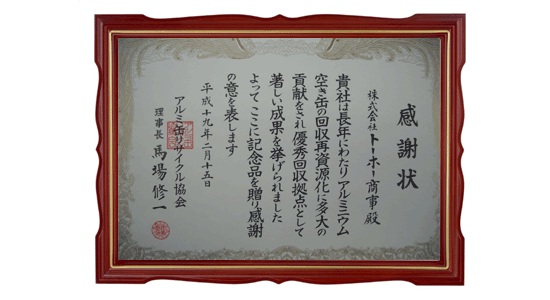 感謝状
株式会社 トーホー商事殿
貴社は長年にわたりアルミニウム
空き缶の回収再資源化に多大の
貢献をされ優秀回収拠点として
著しい成果を挙げられました
よってここに記念品を贈り感謝
の意を表します
平成十九年二月十五日
アルミ缶リサイクル協会
理事長 馬場修一